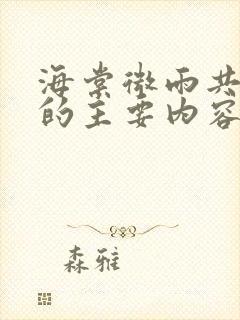 海棠微雨共
的主要内容
森雅